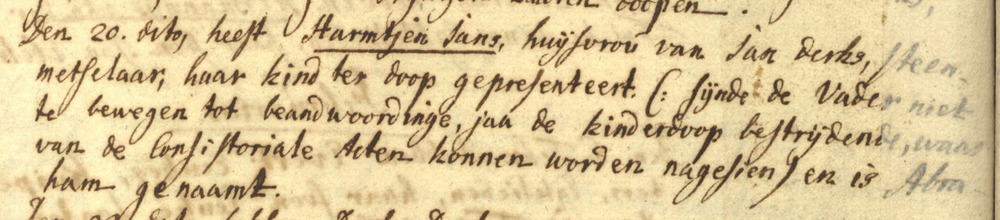 doopen.
Den 20. dito, heeft Harmtjen Jans, huijsvroú van Jan derks, steen-
metselaar; haar kind ter doop gepresenteert. (: sijnde de Vader niet
te bewegen tot beandwoordinge, jaa de kinderdoop bestrijdende, waar
van de Consistoriale Acten konnen worden nagesien) en is Abra
ham genaamt.